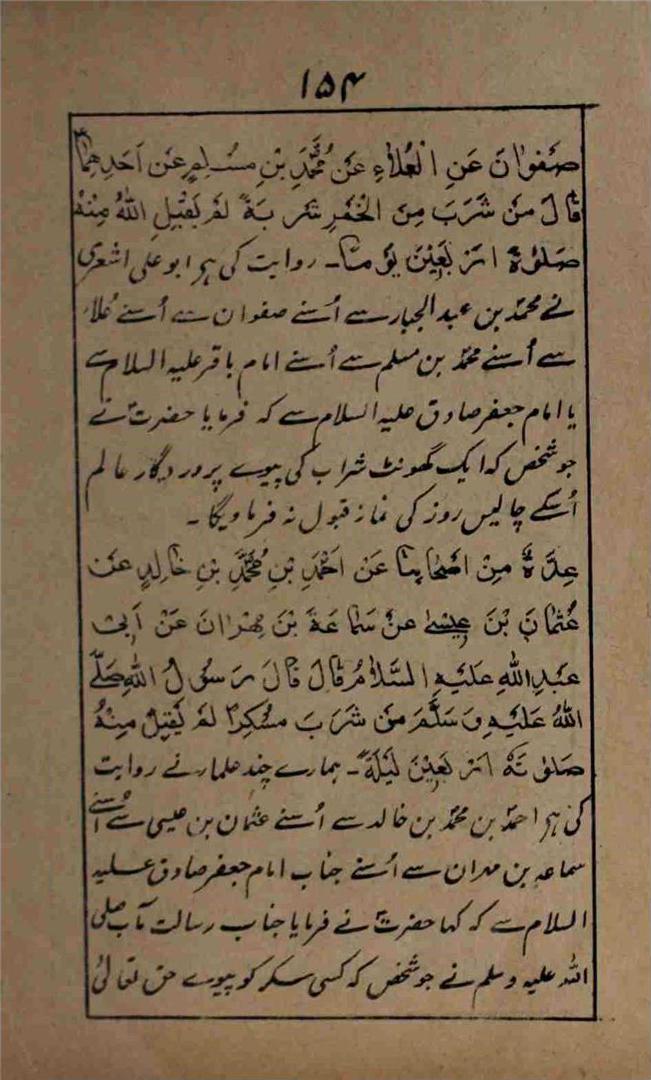 ۱۵۴
صَفْوَانَ عَنِ الْعَلَاءِ عَنْ مُحَمَّدِ بْنِ مُسْلِمٍ عَنْ اَحَدِهِمَا
قَالَ مَنْ شَرِبَ مِنَ الْخَمْرِ شَرْبَةً لَمْ يَقْبَلِ اللّٰهُ مِنْهُ
صَلٰوةً اَرْبَعِيْنَ يَوْمًا۔ روایت کی ہے ابو علی اشعری
نے محمدؐ بن عبد الجبار سے اُسنے صفوان سے اُسنے عُلاء
سے اُسنے محمدؐ بن مسلم سے اُسنے امام باقر علیہ السلام سے
یا امام جعفر صادق علیہ السلام سے کہ فرمایا حضرتؑ نے
جو شخص کہ ایک گھونٹ شراب کی پیوے پروردگار عالم
اُسکے چالیس روز کی نماز قبول نہ فرماویگا۔
عِدَّةٌ مِنْ اَصْحَابِنَا عَنْ اَحْمَدَ بْنِ مُحَمَّدِ بْنِ خَالِدٍ عَنْ
عُثْمَانَ بْنَ عِيْسٰے عَنْ سَمَاعَةَ بْنَ مِهْرَانَ عَنْ اَبِيْ
عَبْدِ اللّٰهِ عَلَيْهِ السَّلَامُ قَالَ قَالَ رَسُوْلُ اللّٰهِ صَلَّے
اللّٰهُ عَلَيْهِ وَسَلَّمَ مَنْ شَرِبَ مُسْكِرًا لَمْ يُقْبَلْ مِنْهُ
صَلٰوتَهُ اَرْبَعِيْنَ لَيْلَةً۔ ہمارے چند علمار نے روایت
کی ہے احمدؐ بن محمدؐ بن خالد سے اُسنے عثمان بن عیسی سے اُسنے
سماعہ بن مہران سے اُسنے جناب امام جعفر صادق علیہ
السلام سے کہ کہا حضرتؑ نے فرمایا جناب رسالت مآب صلی
اللہ علیہ وسلم نے جو شخص کہ کسی سکر کو پیوے حق تعالیٰ